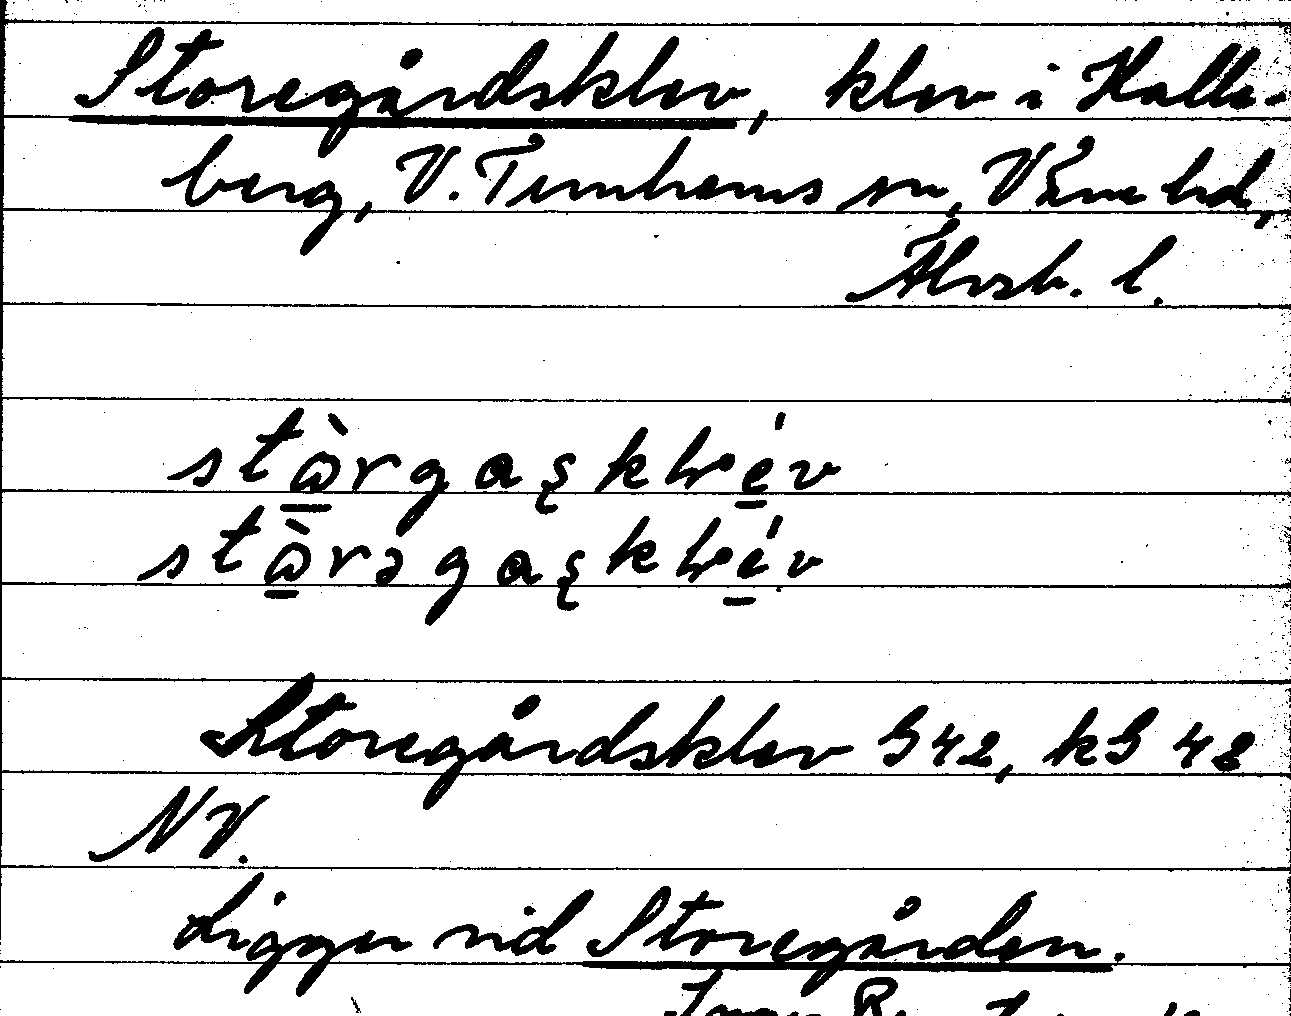 Storegårdsklev, klev i Halle-
berg, V. Tunhems sn, Väne hd,
Älvsb. l.
stὼ̲rgaşkłé̲v
stὼ̲rəgaşkłé̲v
Storegårdsklev G 42, kG 42
NV.
Ligger vid Storegården.